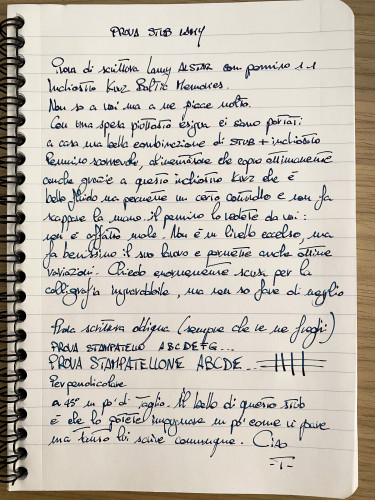 PROVA STUB LAMY
Prova di scrittura Lamy ALSTAR con pennino 1.1
Inchiostro KWZ Baltic Memories.
Non so a voi ma a me piace molto.
Con una spesa piuttosto esigua ci siamo portati
a casa una bella combinazione di STUB + inchiostro
Pennino scorrevole, dimensione che copio ottimamente
anche grazie a questo inchiostro KWZ che è
bello fluido ma permette un certo controllo e non fa
scappare la mano. Il pennino lo vedete da voi:
non è affatto male. Non è un livello eccelso, ma
fa benissimo il suo lavoro e permette anche ottime
variazioni. Chiedo enormemente scusa per la
calligrafia improbabile, ma non so fare di meglio
Prova scrittura obliqua (sempre che ce ne freghi)
PROVA STAMPATELLO ABCDEFG...
PROVA STAMPATELLONE ABCDE...
Perpendicolare
a 45° un po' di taglio. Il bello di questo stub
è che lo potete impugnare un po' come vi pare
ma tanto lui scrive comunque. Ciao
-T-